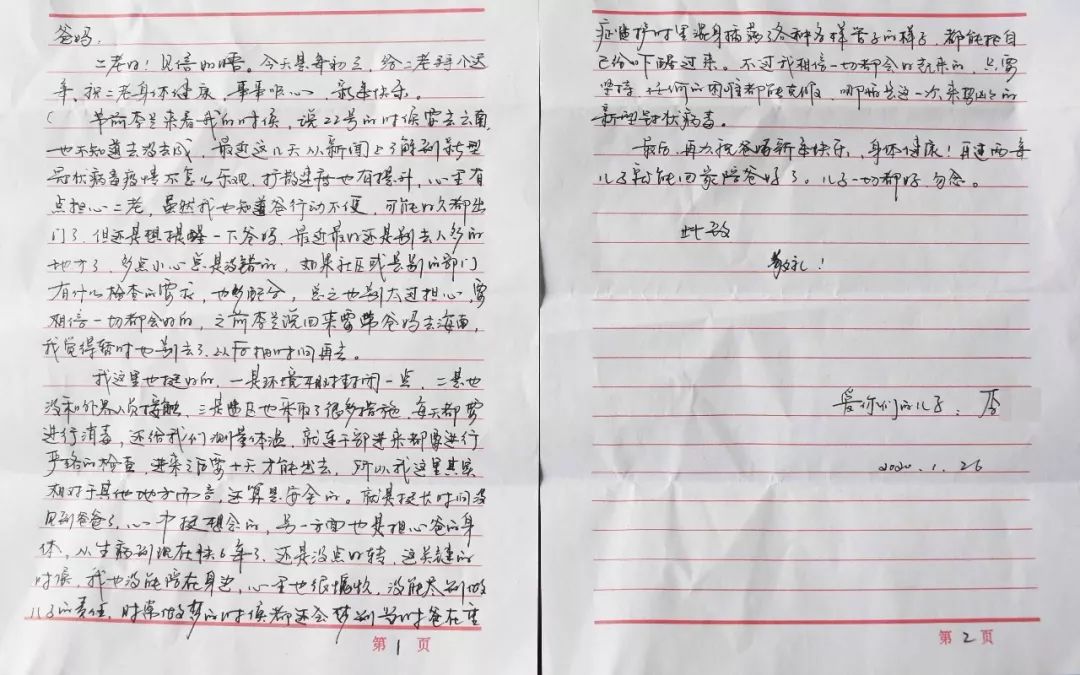 爸妈：
二老好！见信如晤。今天是年初二，给二老拜个迟
年，祝二老身体健康，事事顺心，新年快乐。
节前李兰来看我的时候，说22号的时候要去云南，
也不知道去没去成，最近这几天从新闻上了解到新型
冠状病毒疫情不怎么乐观，扩散进度也有提升，心里有
点担心二老，虽然我也知道爸行动不便，可能好久都出
门了，但还是想提醒一下爸妈，最近最好还是别去人多的
地方了，多点小心总是没错的，如果社区或是别的部门
有什么检查的要求，也多配合，总之也别太过担心，要
相信一切都会好的，之前李兰说回来要带爸妈去海南，
我觉得暂时也别去了，以后抽时间再去。
我这里也挺好的，一是环境相对封闭一点，二是也
没和外界人员接触，三是监区也采取了很多措施，每天都要
进行消毒，还给我们测量体温，就连干部进来都要进行
严格的检查，进来之后要十天才能出去，所以我这里其实
相对于其他地方而言，还算是安全的。就是挺长时间没
见到爸爸了，心中挺想念的，另一方面也是担心爸的身
体，从生病到现在快6年了，还是没点好转，这关键的
时候，我也没能陪在身边，心里也很愧疚，没能尽到做
儿子的责任，时常做梦的时候都还会梦到当时爸在重
第1页
症监护时里浑身插满了各种各样管子的样子，都能把自
己给吓醒过来。不过我相信一切都会好起来的，只要
坚持，任何的困难都能克服，哪怕是这一次来势凶凶的
新型冠状病毒。
最后，再次祝爸妈新年快乐，身体健康！再过两年
儿子就能回家陪爸妈了。儿子一切都好，勿念。
此致
敬礼！
爱你们的儿子：
2020.1.26
第2页